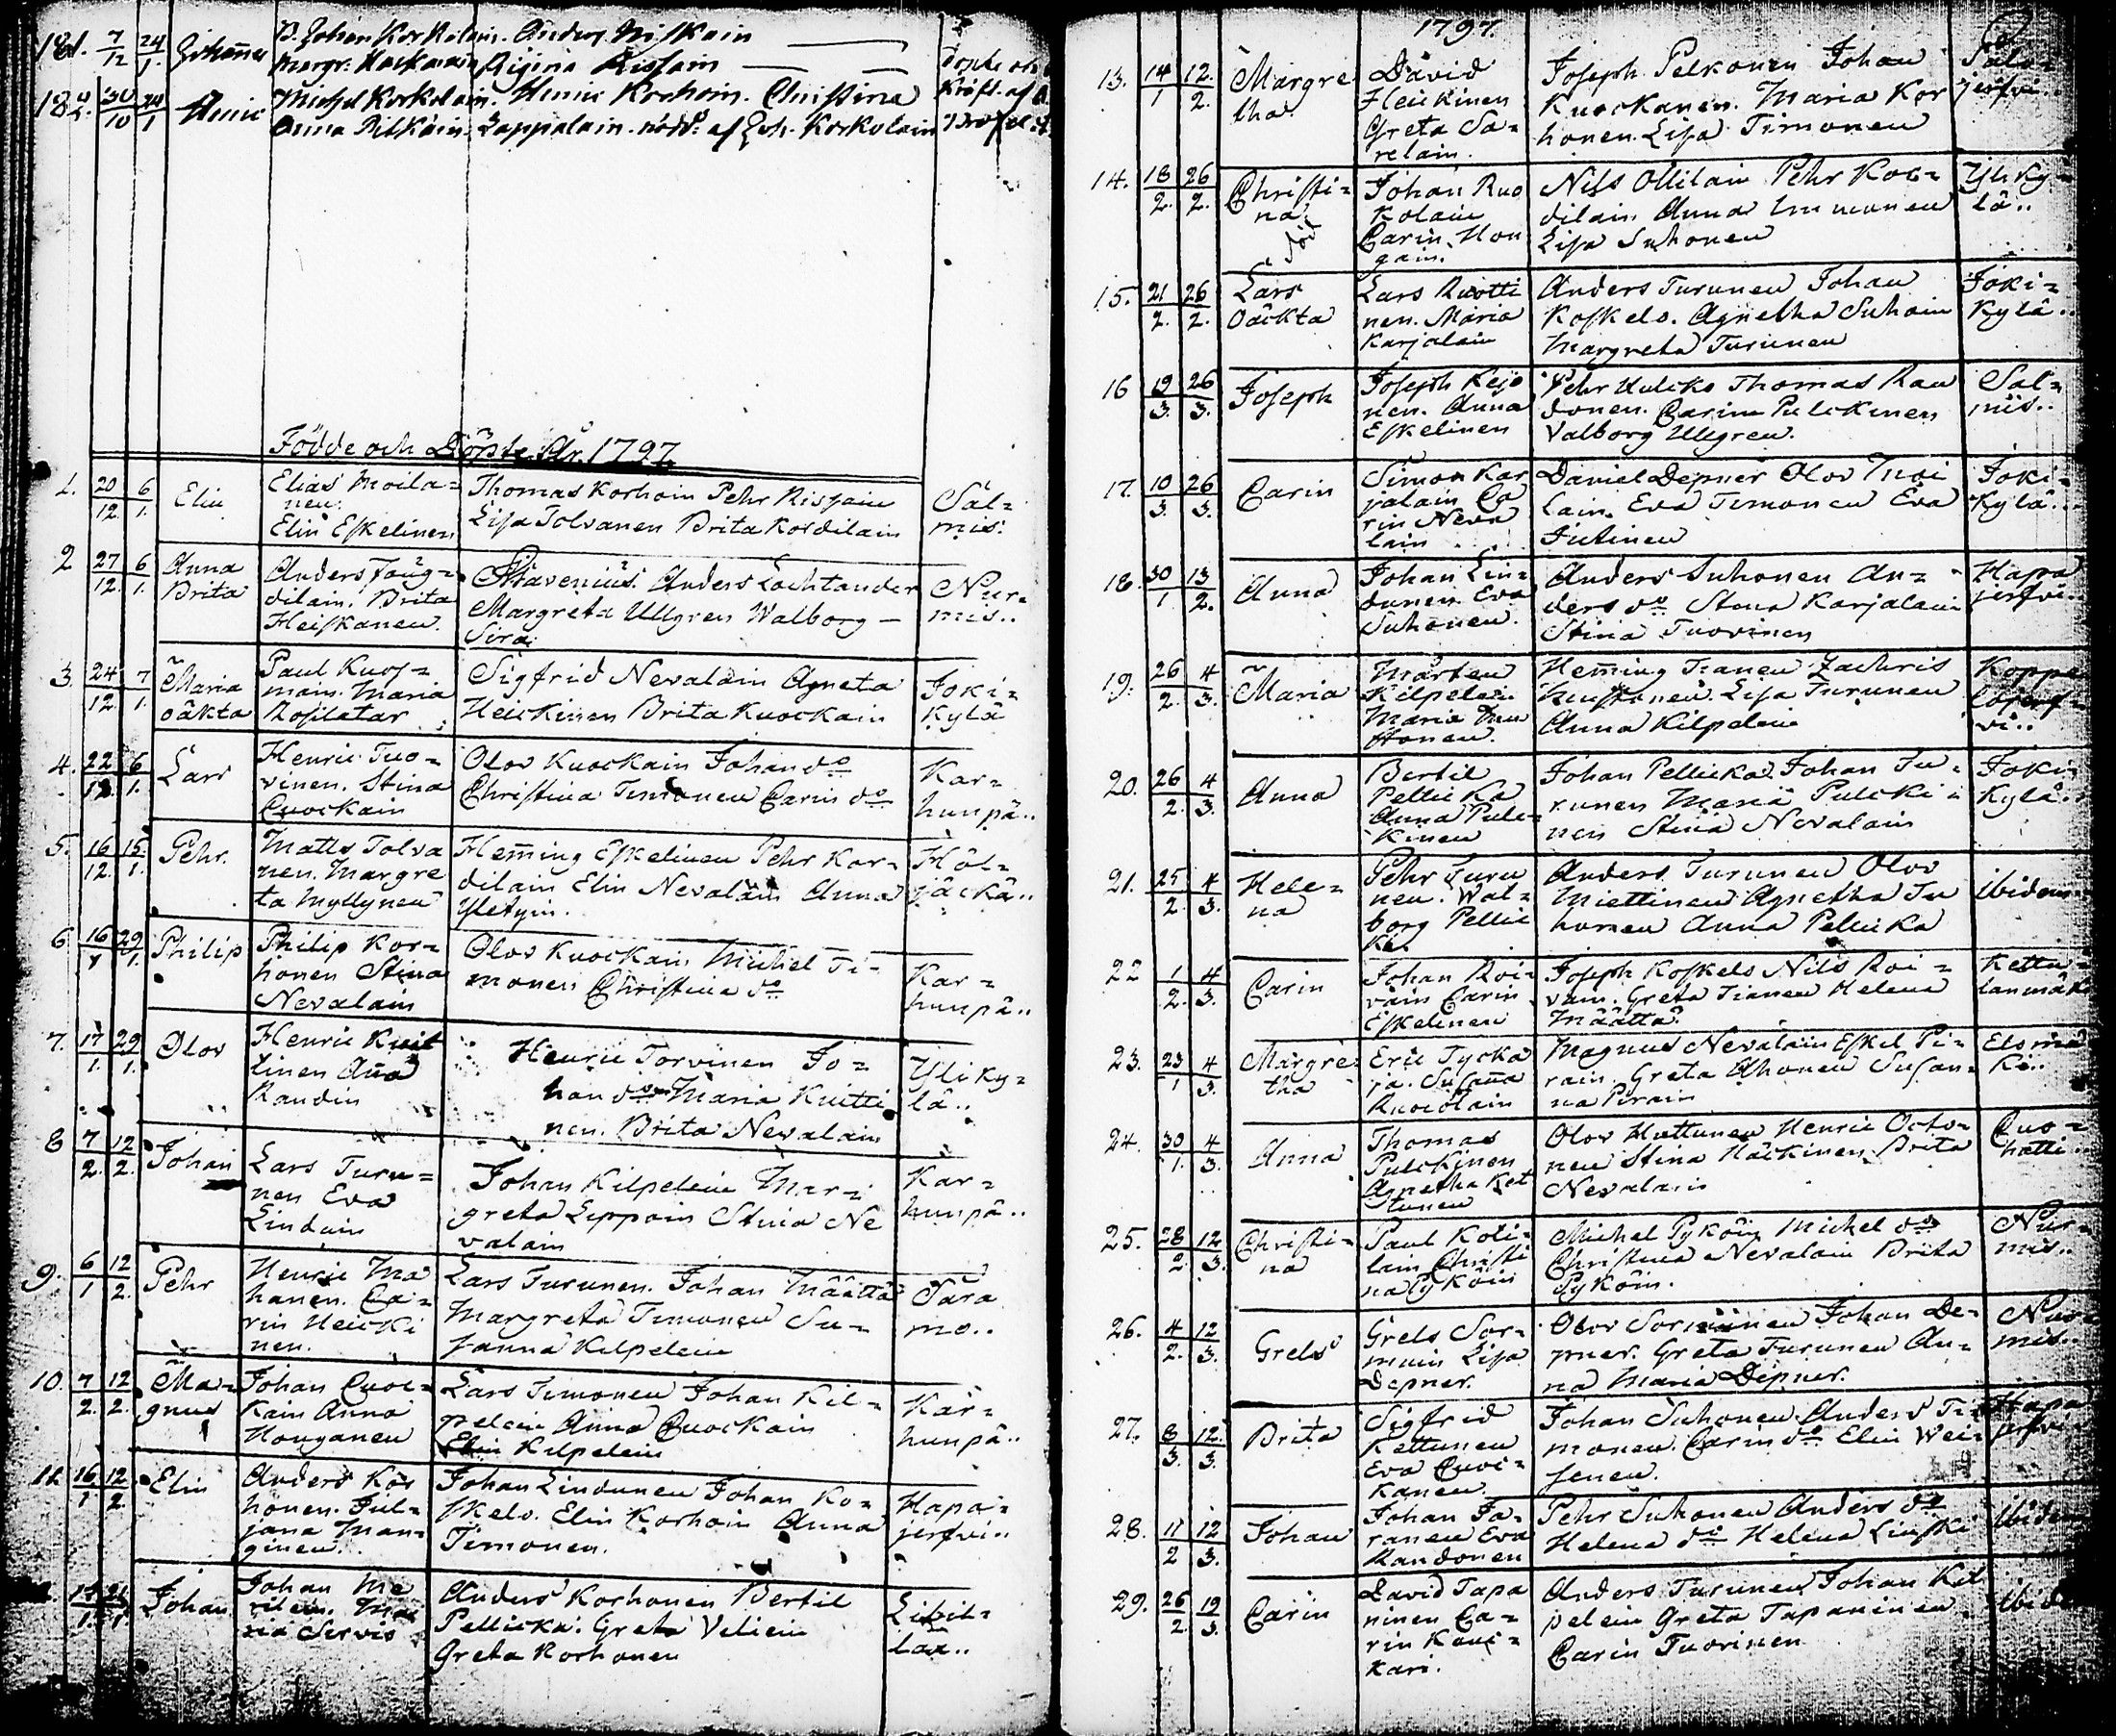 181. 7/12 24/1. Johannes
D. Johan Korkolain. Anders Niskain
Margr. Hackarain Rigina Rissain
182. 30/10 24/1 Henric
Michel Korkolain. Henric Korhoin. Christina
Anna Pitkäin. Lappalain. nödd. af Joh. Korkolain
Födde och Döpte År. 1797.
1. 20/12. 6/1. Elin
Elias Moila=
nen.
Elin Eskelinen
Thomas Korhoin Pehr Rissain
Lisa Tolvanen Brita Kordilain
Sal=
mis.
2 27/12. 6/1. Anna
Brita
Anders
dilain. Brita
Heiskanen.
Stavenius. Anders Lochtander
Margreta Ullgren Walborg –
Sira.
Nur=
mis..
3. 24/12. 7/1. Maria
oäkta
Paul Kuos=
main. Maria
Rosilatar
Sigfrid Nevalain Agneta
Heickinen Brita Kuockain
Joki=
kylä
4. 22/12. 6/1. Lars
Henric Tuo=
vinen. Stina
Quockain
Olov Kuockain Johan do
Christina Timonen Carin do
Kar=
hunpä..
5. 16/12. 15/1. Pehr.
Matts Tolva
nen. Margre
ta Myllynen
Heming Eskelinen Pehr Kor=
dilain Elin Nevalain Anna
Yletyin.
Höl=
jäckä..
6. 16/1 29/1. Philip
Philip Kor=
honen Stina
Nevalain
Olov Kuockain Michel Ti=
monen Christina do
Kar=
hunpä..
7. 17/1. 29/1. Olov
Henric Kuit
tinen Aña
Randin
Henric Torvinen Jo=
han do Maria Kuitti
nen. Brita Nevalain
Yliky=
lä..
8 7/2. 12/2. Johan
Lars Turu=
nen Eva
Lindain
Johan Kilpelein Mar=
greta Leppain Stina Ne
valain
Kar=
hunpä..
9. 6/1 12/2. Pehr
Henric Ma
hanen. Ca=
rin Heicki
nen.
Lars Turunen. Johan Määttä
Margreta Timonen Su=
sanna Kilpelein
Sara
mo..
10. 7/2. 12/2. Ma=
gnus
Johan Quoc=
kain Anna
Honganen
Lars Timonen Johan Kil=
pelein Anna Quockain
Elin Kilpelein
Kar=
hunpä..
11. 16/1 12/2. Elin
Anders Kor
honen. Jul=
jana Man=
ginen..
Johan Lindunen Johan Ko=
skelo. Elin Korhoin Anna
Timonen.
Hapa=
jerfvi..
Johan
Johan Me
rilein.
na Servis
Anders Korhonen Bertil
Pellicka. Greta Veliein
Greta Korhonen
1797.
13. 14/1 12./2. Margre
tha.
David
Heickinen
Greta Sa=
relain.
Joseph Pelkonen Johan
Kuockanen. Maria Kor
honen. Lisa Timonen
jerfvi.
14. 18/2. 26/2. Christi=
na.
död
Johan Ruo
kolain
Carin Hon
gain.
Nils Ollilain Pehr Kor=
dilain. Anna Immonen
Lisa Suhonen
Yliky=
lä..
15. 21/2. 26/2. Lars
Oäckta
Lars Ruotti
nen. Maria
Karjalain
Anders Turunen Johan
Koskelo. Agnetha Suhoin
Margreta Turunen
Joki=
kylä..
16 19/3. 26/3. Joseph
Joseph Kejo
nen. Anna
Eskelinen
Pehr Hulcko Thomas Rau
donen. Carin Pulckinen
Valborg Ullgren.
Sal=
mis..
17. 10/3. 26/3. Carin
Simon Kar
jalain Ca
rin Neva
lain
Daniel Depner Olov Moi
lain. Eva Timonen Eva
Jutinen
Joki=
kylä..
18. 30/1 13/2. Anna
Johan Lin=
dunen. Eva
Suhonen.
Anders Suhonen An=
ders do Stina Karjalain
Stina Tuovinen
Hapa
jerfvi..
19. 26/2. 4/3. Maria
Mårten
Kilpelein
Maria Mu
stonen.
Heming Tianen Zachris
Mustonen. Lisa Turunen
Anna Kilpelein
Koppe
lojerf=
vi..
20. 26/2. 4/3. Anna
Bertil
Pellicka
Anna Pulc=
kinen
Johan Pellicka Johan Tu=
runen Maria Pulcki=
nen Stina Nevalain
Joki=
kylä.
21. 25/2. 4/3. Hele=
na
Pehr Turu
nen. Wal=
borg Pellic
ka
Anders Turunen Olov
Miettinen Agnetha Tu
honen Anna Pellicka
ibidem
22 1/2. 4/3. Carin
Johan Roi=
vain Carin
Eskelinen
Joseph Koskelo Nils Roi=
vain. Greta Tianen Helena
Määttä.
Kettu=
lanmäki
23. 23/1 4/3. Margre=
tha
Eric Tycka
jä. Susaña
Ruocolain
Magnus Nevalain Eskel Pi=
rain. Greta Uhonen Susan=
na Pirain
24. 30/1. 4/3. Anna
Thomas
Pulckinen
Agnetha Ket
tunen
Olov Huttunen Henric Octo=
nen Stina Häckinen Brita
Nevalain
Quo=
hatti
25. 28/2. 12/3. Christi=
na
Paul Koti=
lain Christi
na Pyköin
Michel Pyköin Michel do
Christina Nevalain Brita
Pyköin.
Nur=
mis..
26. 4/2. 12/3. Grels
Grels Sor=
muin Lisa
Depner.
Olov Sormuinen Johan De=
pner. Greta Turunen An=
na Maria Depner.
Nur=
mis..
27. 8/3. 12./3. Brita
Sigfrid
Kettunen
Eva Quoc=
kanen.
Johan Suhonen Anders Ti=
monen. Carin do Elin Wei=
senen.
Hapa
jerfvi
28. 11/2 12/3. Johan
Johan Jo=
ranen Eva
Randonen
Pehr Suhonen Anders do
Helena do Helena Linski
ibidem
29. 26/2. 19/3. Carin
David Tapa
ninen Ca=
rin Kaui=
kari.
Anders Turunen Johan Kil
pelein Greta Tapaninen
Carin Tuovinen